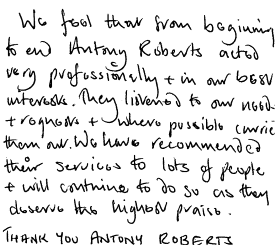 We feel that from beginning
to end Antony Roberts acted
very professionally + in our best
interests. They listened to our needs
+ requests + where possible carried
them out. We have recommended
their services to lots of people
+ will continue to do so as they
deserve the highest praise.
THANK YOU ANTONY ROBERTS